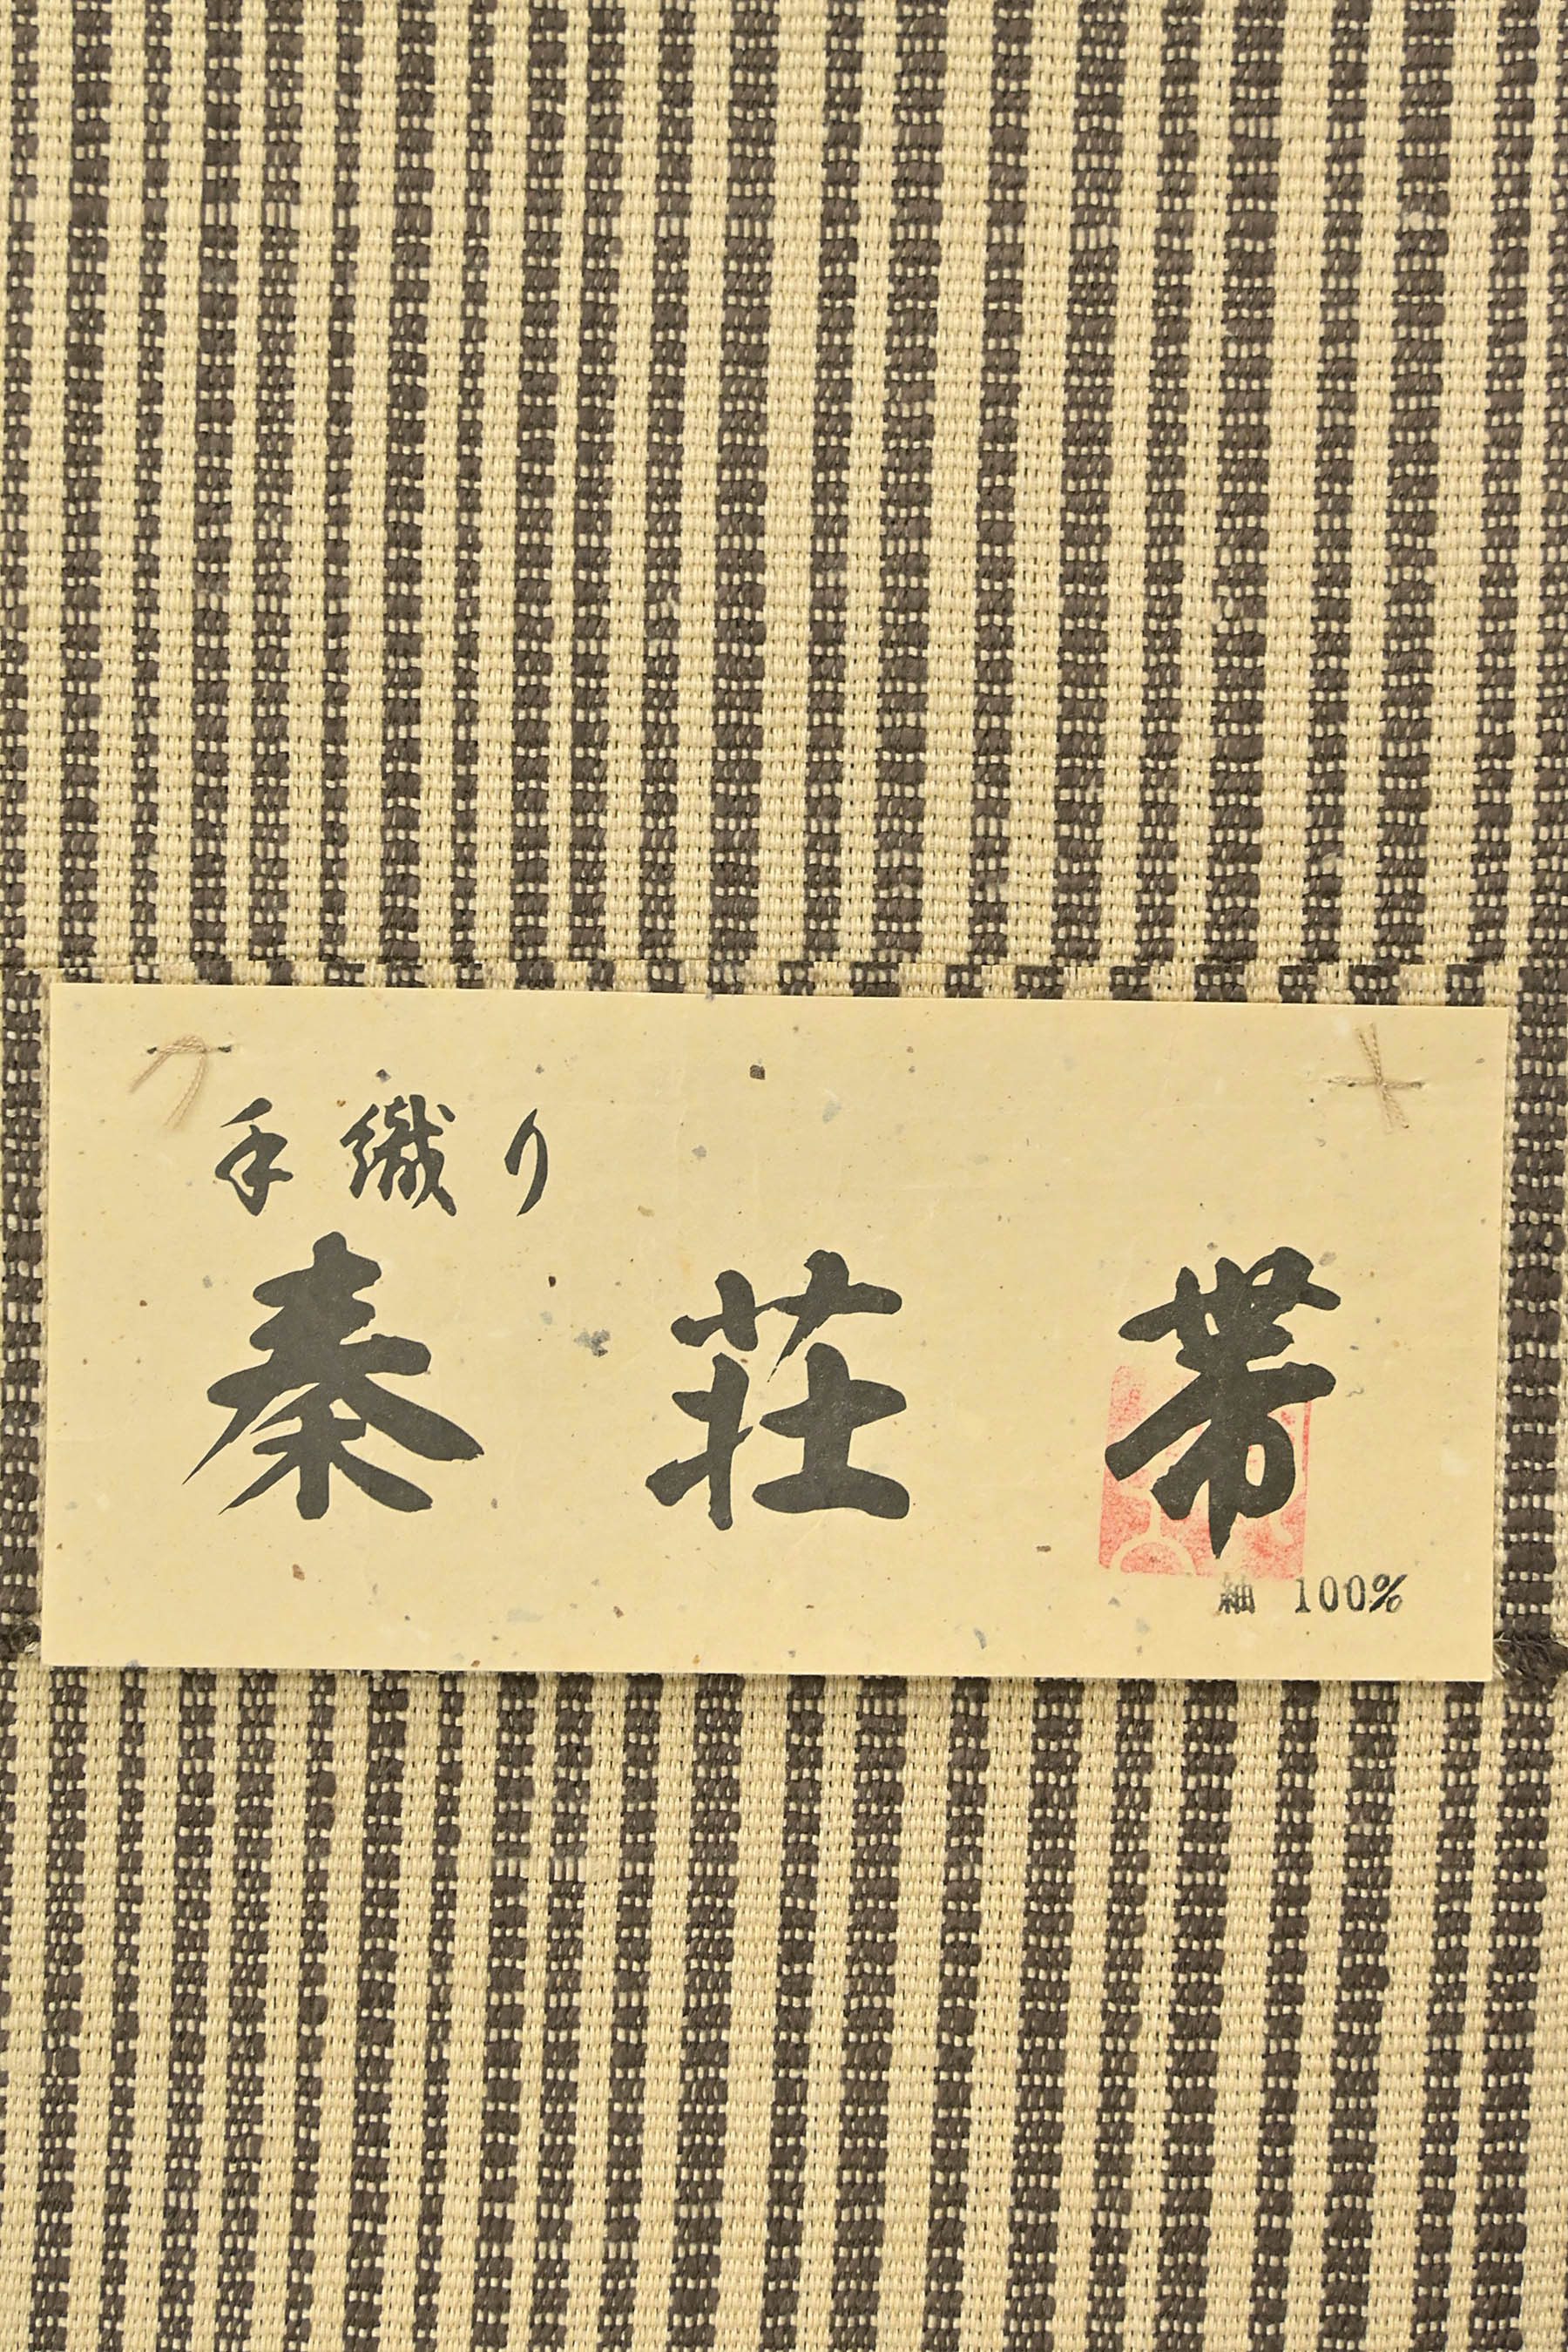 手織り
秦荘帯
紬 100%